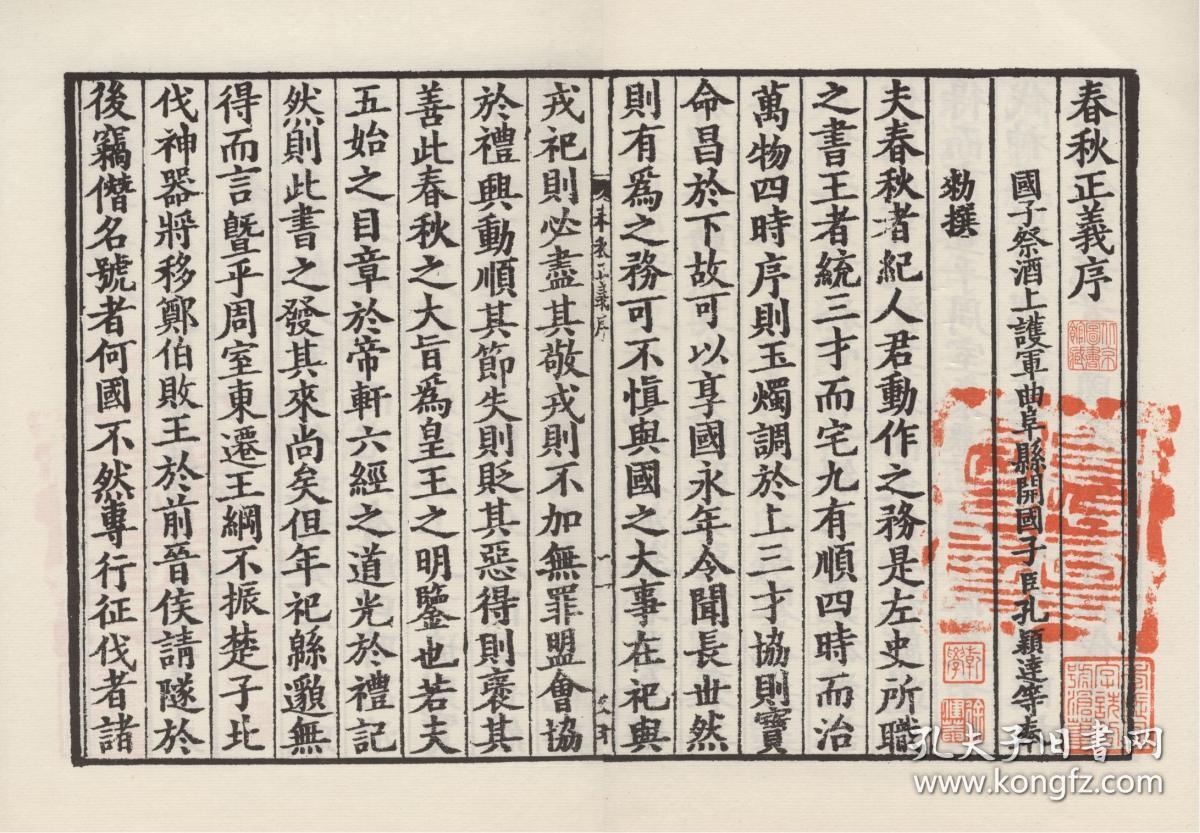 春秋正義序
國子祭酒上護軍曲阜縣開國子臣孔穎達等奉
勑撰
夫春秋者紀人君動作之務是左史所職
之書王者統三才而宅九有順四時而治
萬物四時序則玉燭調於上三才協則寶
命昌於下故可以享國永年令聞長世然
則有爲之務可不愼與國之大事在祀與
戎祀則必盡其敬戎則不加無罪盟會協
於禮興動順其節失則貶其惡得則襃其
善此春秋之大旨爲皇王之明鑒也若夫
五始之目章於帝軒六經之道光於禮記
然則此書之發其來尚矣但年祀緜邈無
得而言曁乎周室東遷王綱不振楚子北
伐神器將移鄭伯敗王於前晉侯請隧於
後竊僭名號者何國不然專行征伐者諸
北京圖書館藏
孔夫子旧书网
www.kongfz.com